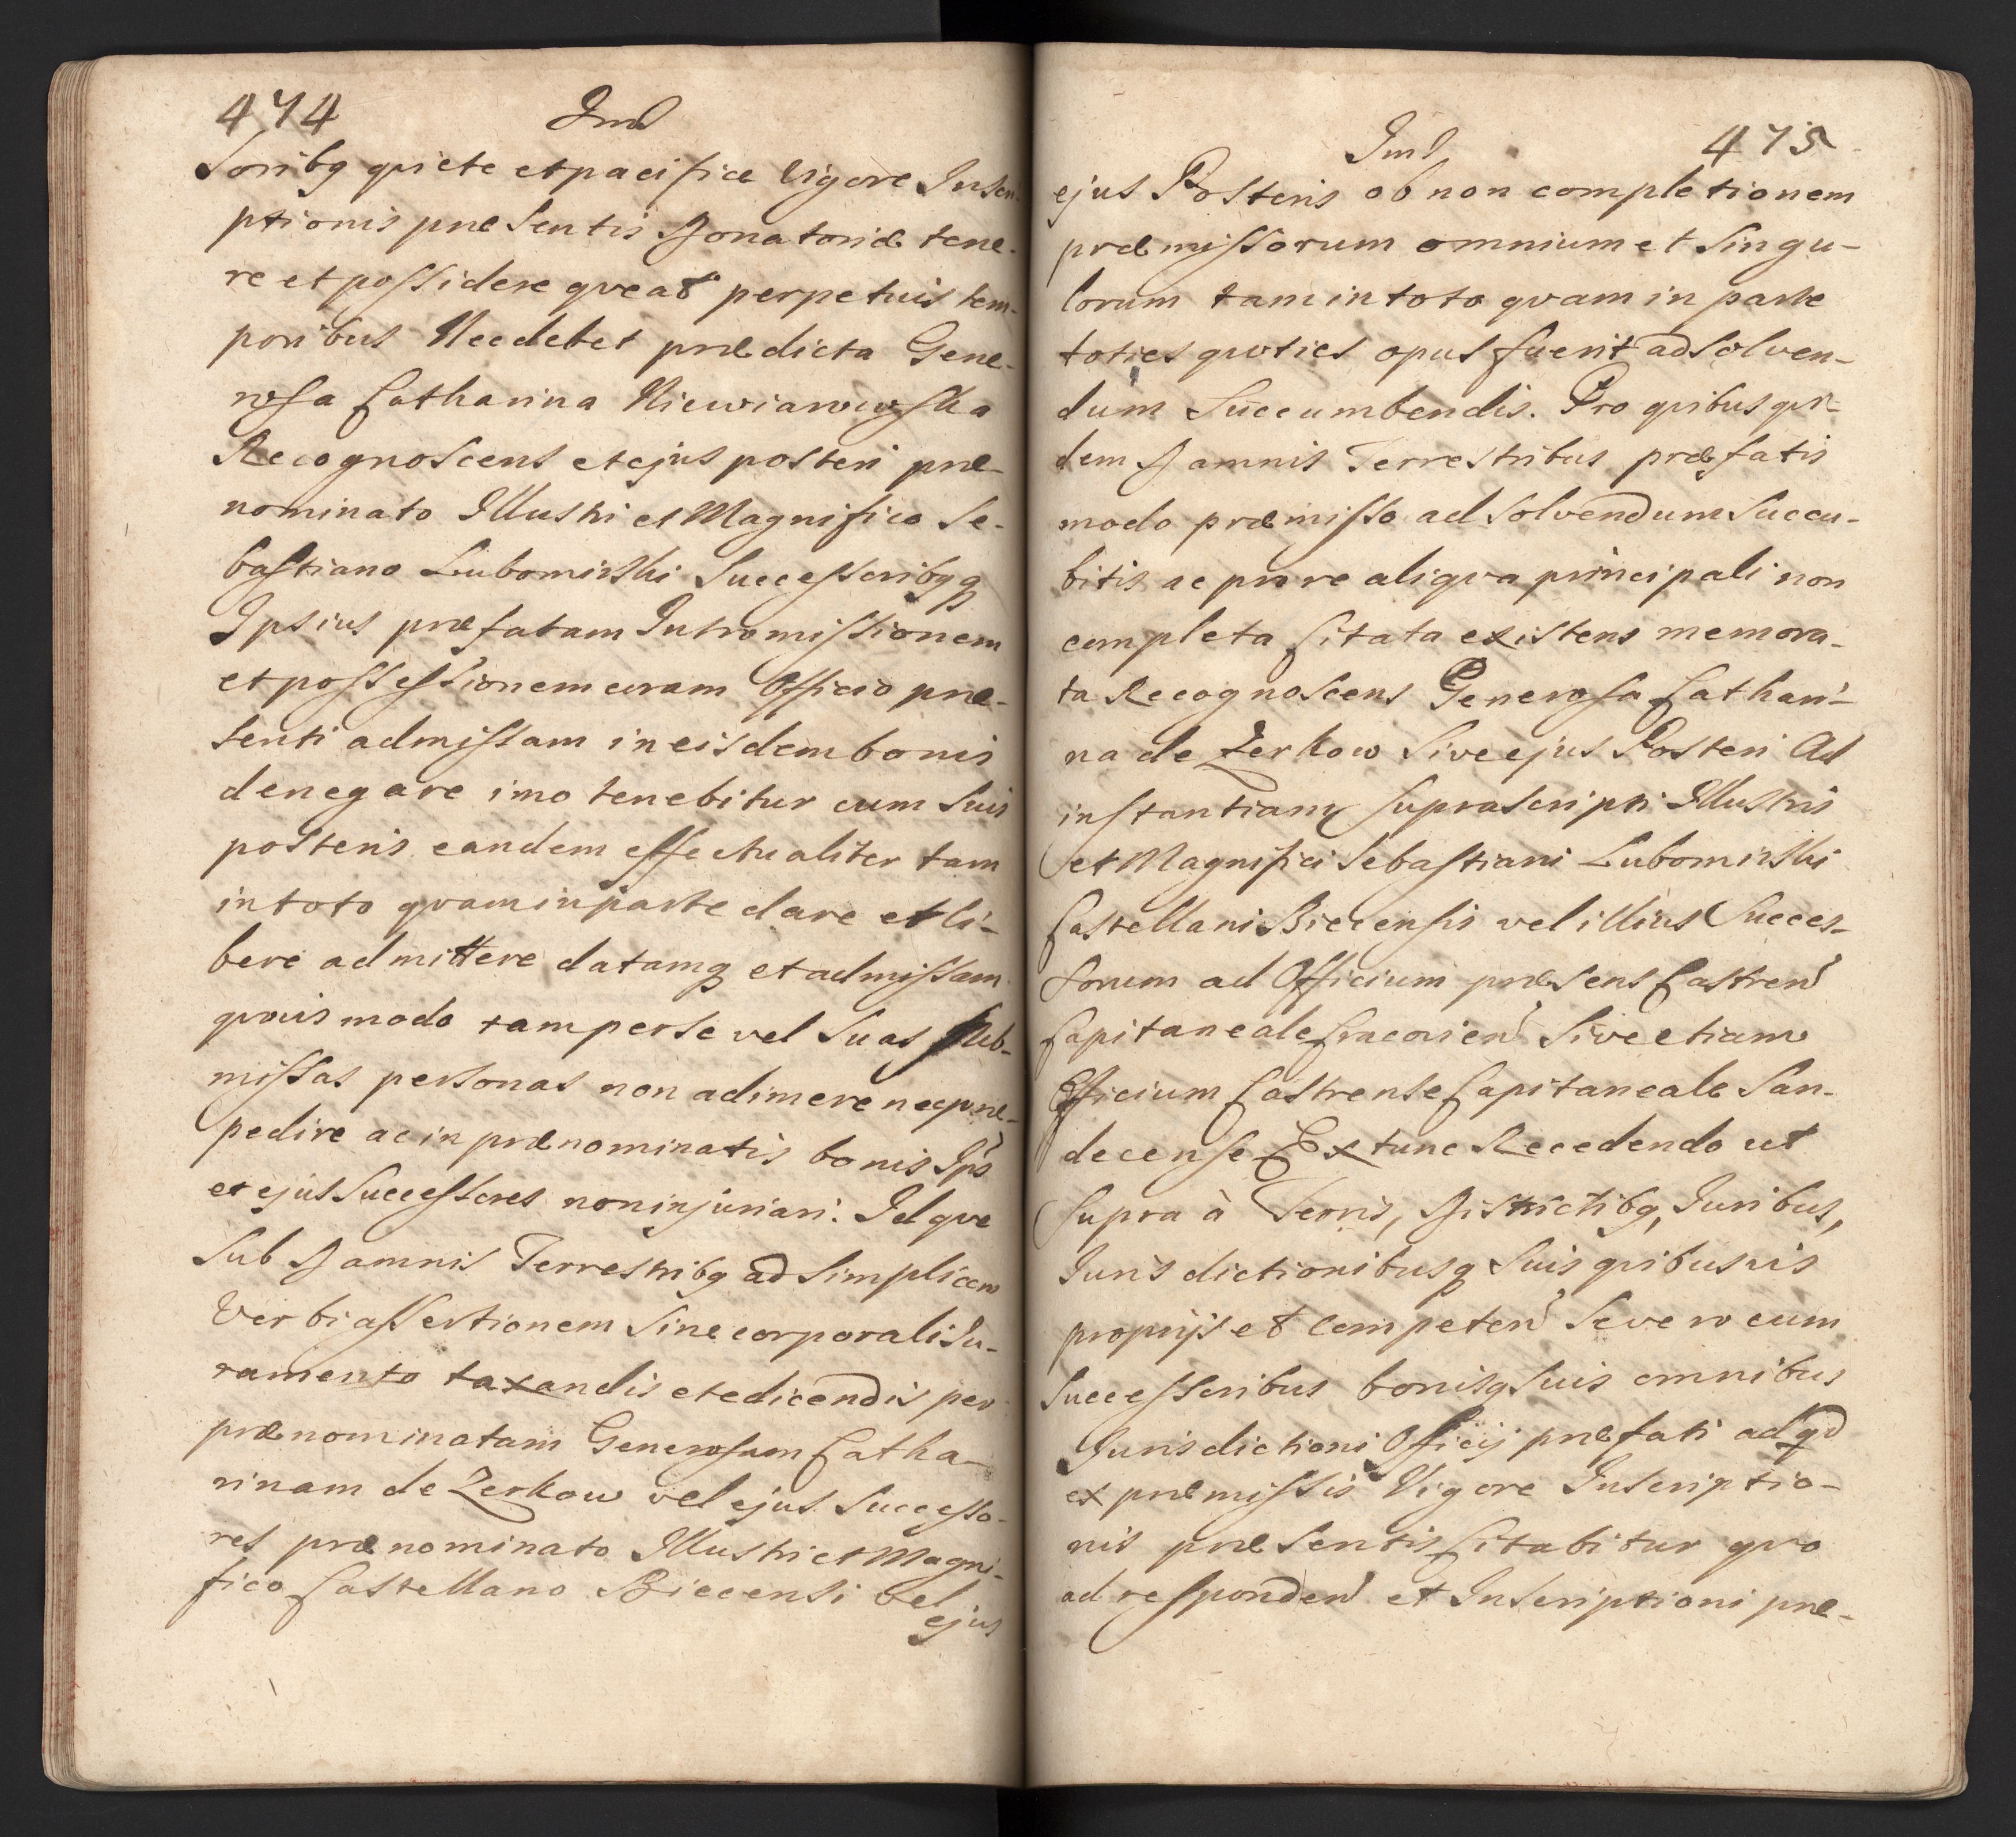 474
Soribq quiete et pacifice Vigore Inscri-
ptionis præsentis Donatoriæ tene-
re et possidere qveat perpetuis tem-
poribus Nec debet prædicta Gene-
rosa Catharina Niewiarowska
Recognoscens et ejus posteri præ-
nominato Illustri et Magnifico Se-
bastiano Lubomirski Successoribqq
Ipsius præfatam Intromissionem
et possessionem coram Officio præ-
senti admissam in eisdem bonis
denegare imo tenebitur cum suis
posteris eandem effectualiter tam
in toto qvam in parte dare et li-
bere admittere datamq et admissam
qvovis modo tam per se vel suas sub-
missas personas non adimere nec præ-
pedire ac in prænominatis bonis Ips
et ejus Successores non injuriari. Id qve
sub Damnis Terrestribq ad simplicem
Verbi assertionem sine corporali Ju-
ramento taxandis et edicendis per
prænominatam Generosam Catha-
rinam de Zerkow vel ejus Successo-
res prænominato Illustri et Magni-
fico Castellano Biecensi vel
ejus
475
ejus Posteris ob non completionem
præmissorum omnium et singu-
lorum tam in toto qvam in parte
toties qvoties opus fuerit ad solven-
dum Succumbendis. Pro qvibus qvi-
dem Damnis Terrestribus præfatis
modo præmisso ad solvendum Succu-
bitis ac pro re aliqva principali non
completa Citata existens memora-
ta Recognoscens Generosa Cathari-
na de Zerkow Sive ejus Posteri Ad
instantiam supra scripti Illustris
et Magnifici Sebastiani Lubomirski
Castellani Biecensis vel illius Succes-
sorum ad Officium præsens Castren
Capitaneale Cracovien Sive etiam
Officium Castrense Capitaneale San-
decense Ex tunc Recedendo ut
supra à Terris, Districtibq, Juribus,
Jurisdictionibusq suis qvibusvis
proprijs et competen Se vero cum
Successoribus bonisq suis omnibus
Jurisdictioni Officij præfati ad qd
ex præmissis Vigore Inscriptio-
nis præsentis Citabitur qvo
ad responden et Inscriptioni præ-